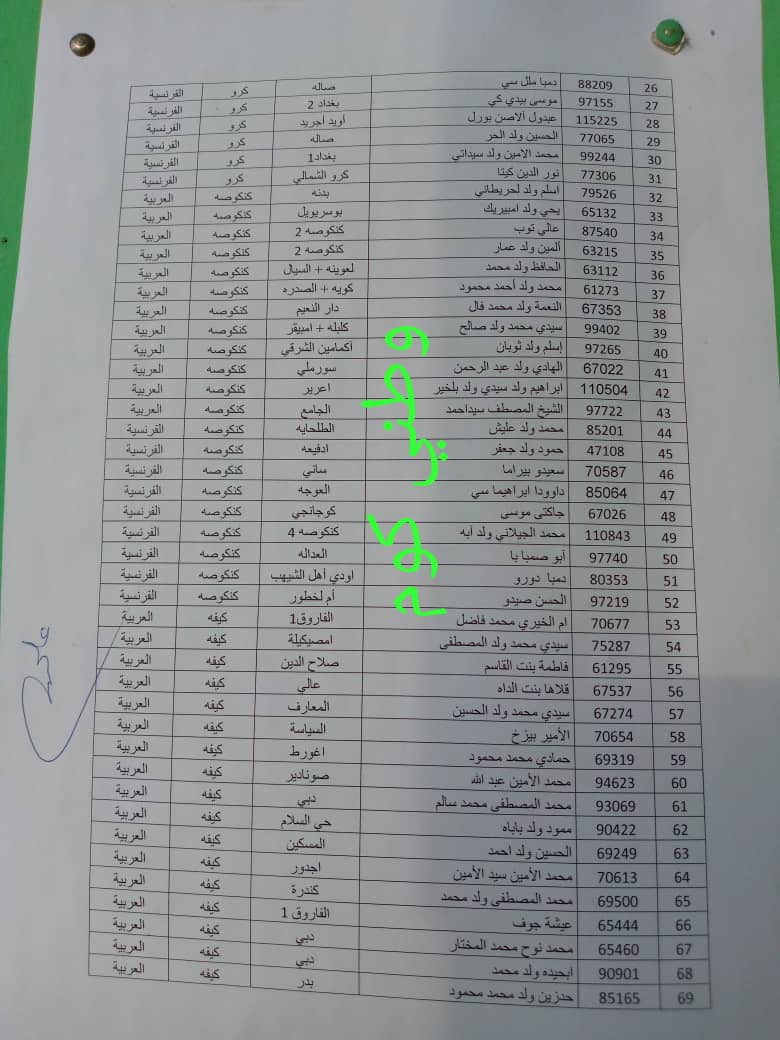 26 88209 دمبا ملل سي صاله كرو الفرنسية
27 97155 موسى بيدي كي بغداد 2 كرو الفرنسية
28 115225 عبدول الاصن بورل أويد اجريد كرو الفرنسية
29 77065 الحسين ولد الحر صاله كرو الفرنسية
30 99244 محمد الامين ولد سيداتي بغداد1 كرو الفرنسية
31 77306 نور الدين كيتا كرو الشمالي كرو الفرنسية
32 79526 اسلم ولد لحريطاني بدنه كنكوصه العربية
33 65132 يحي ولد امبيريك بوسرويل كنكوصه العربية
34 87540 عالي توب كنكوصه 2 كنكوصه العربية
35 63215 ألمين ولد عمار كنكوصه 2 كنكوصه العربية
36 63112 الحافظ ولد محمد لعوينه + السيال كنكوصه العربية
37 61273 محمد ولد أحمد محمود كويه + الصدره كنكوصه العربية
38 67353 النعمة ولد محمد فال دار النعيم كنكوصه العربية
39 99402 سيدي محمد ولد صالح كلبله + امبيقر كنكوصه العربية
40 97265 إسلم ولد ثوبان أكمامين الشرقي كنكوصه العربية
41 67022 الهادي ولد عبد الرحمن سورملي كنكوصه العربية
42 110504 ابراهيم ولد سيدي ولد بلخير اعرير كنكوصه العربية
43 97722 الشيخ المصطف سيداحمد الجامع كنكوصه العربية
44 85201 محمد ولد عليش الطلحايه كنكوصه الفرنسية
45 47108 حمود ولد جعفر ادفيعه كنكوصه الفرنسية
46 70587 سعيدو بيراما ساني كنكوصه الفرنسية
47 85064 داوودا ابراهيما سي العوجه كنكوصه الفرنسية
48 67026 جاكتى موسى كوجانجي كنكوصه الفرنسية
49 110843 محمد الجيلاني ولد آبه كنكوصه 4 كنكوصه الفرنسية
50 97740 أبو صمبا با العداله كنكوصه الفرنسية
51 80353 دمبا دورو اودي أهل الشيهب كنكوصه الفرنسية
52 97219 الحسن صيدو أم لخطور كنكوصه الفرنسية
53 70677 ام الخيري محمد فاضل الفاروق1 كيفه العربية
54 75287 سيدي محمد ولد المصطفى امصيكيلة كيفه العربية
55 61295 فاطمة بنت القاسم صلاح الدين كيفه العربية
56 67537 قلاها بنت الداه عالي كيفه العربية
57 67274 سيدي محمد ولد الحسين المعارف كيفه العربية
58 70654 الأمير بيزخ السياسة كيفه العربية
59 69319 حمادي محمد محمود اغورط كيفه العربية
60 94623 محمد الأمين عبد الله صونادير كيفه العربية
61 93069 محمد المصطفى محمد سالم دبي كيفه العربية
62 90422 ممود ولد باباه حي السلام كيفه العربية
63 69249 الحسين ولد احمد المسكين كيفه العربية
64 70613 محمد الأمين سيد الأمين اجدور كيفه العربية
65 69500 محمد المصطفى ولد محمد كندرة كيفه العربية
66 65444 عيشة جوف الفاروق 1 كيفه العربية
67 65460 محمد نوح محمد المختار دبي كيفه العربية
68 90901 ابحيده ولد محمد دبي كيفه العربية
69 85165 حدزين ولد محمد محمود بدر كيفه العربية
وطني كوم